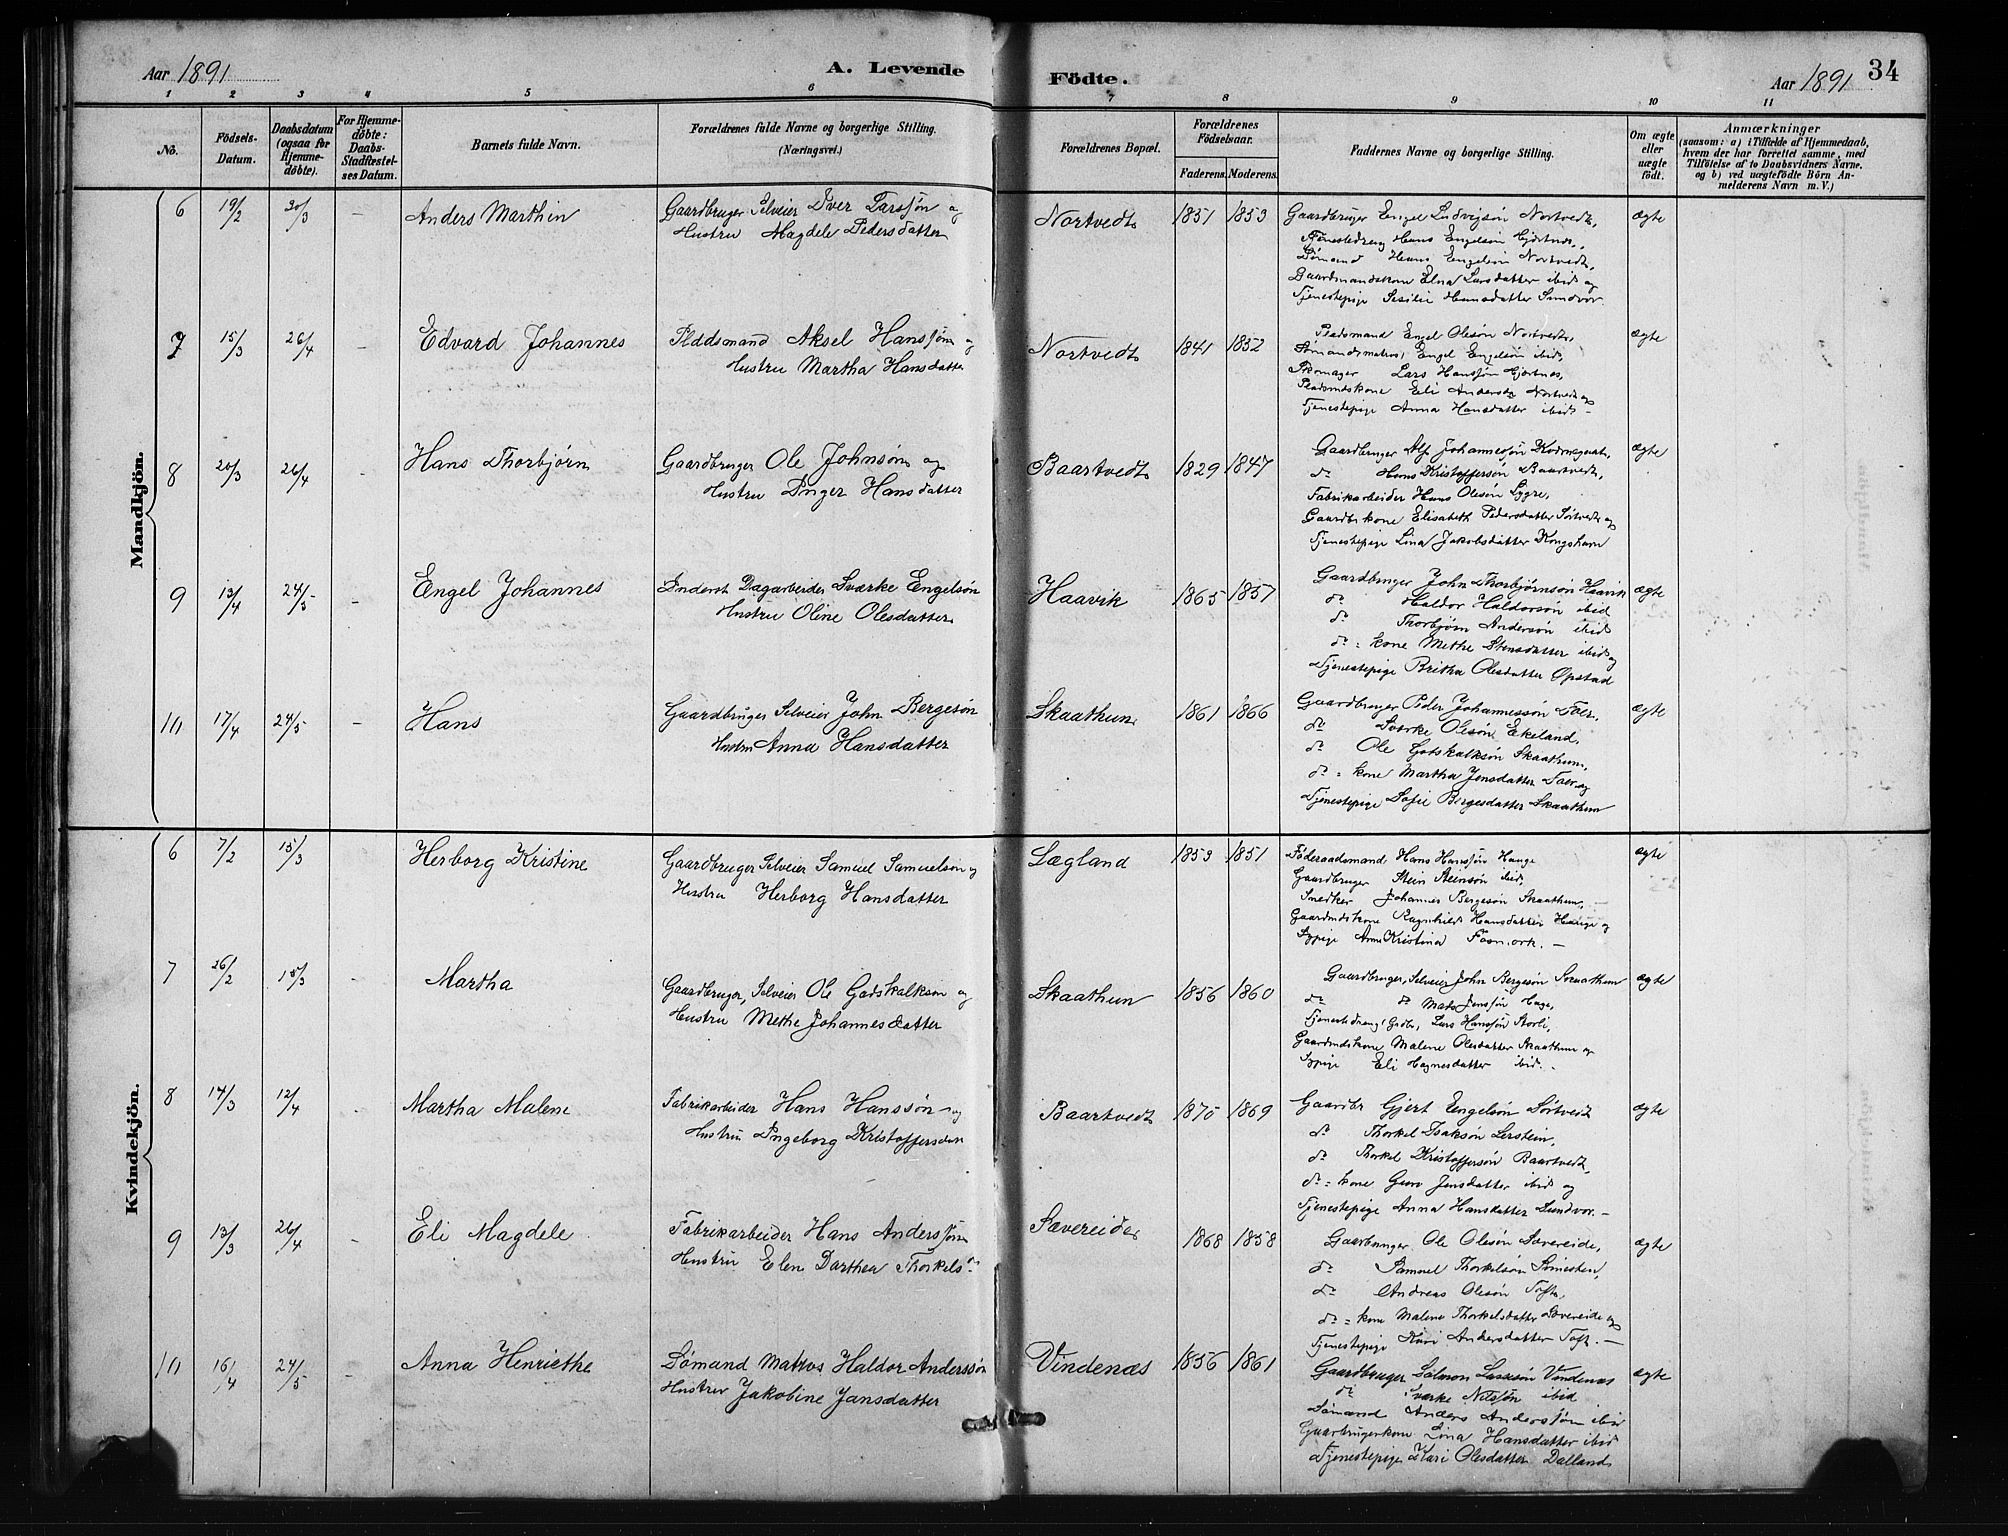 Aar 1891
A. Levende Födte.
Aar 1891
34
1 2 3 4 5 6 7 8 9 10 11
No.
Födsels-Datum.
Daabsdatum (ogsaa for Hjemme-döbte).
For Hjemme-döbte: Daabs-Stadfæstel-ses Datum.
Barnets fulde Navn.
Forældrenes fulde Navne og borgerlige Stilling.
(Næringsvei.)
Forældrenes Bopæl.
Forældrenes Födselsaar.
Faderens. Moderens.
Faddernes Navne og borgerlige Stilling.
Om ægte eller uægte födt.
Anmærkninger
(saasom: a) i Tilfælde af Hjemmedaab,
hvem der har forrettet samme, med
Tilföielse af to Daabsvidners Navne.
og b) ved uægtefödte Börn An-
melderens Navn m. V.)
Mandkjön.
6 19/2 30/3 Anders Marthin
Gaardbruger Selveier Iver Larssøn og
Hustru Magdele Pedersdatter
Nortvedt 1851 1853
Gaardbruger Engel Ludvigsøn Nortvedt,
Tjenestedreng Hans Engelsøn Hjørtnes,
Sømand Hans Engelsøn Nortvedt,
Gaardmandskone Elna Larsdatter ibid og
Tjenestepige Sesilie Hansdatter Sundvor.
ægte
7 15/3 26/4 - Edvard Johannes
Pladsmand Aksel Hanssøn og
Hustru Martha Hansdatter
Nortvedt 1841 1852
Pladsmand Engel Olesøn Nortvedt,
Sømandsmatros Engel Engelsøn ibid,
Skomager Lars Hanssøn Hjørtnes,
Pladsmdskone Eli Andersdr Nortvedt og
Tjenestepige Anna Hansdatter ibid -
ægte
8 20/3 26/4 - Hans Thorbjørn
Gaardbruger Ole Johnsøn og
Hustru Inger Hansdatter
Baartvedt 1829 1847
Gaardbruger Alf Johannessøn
do Hans Kristoffersøn Baartvedt,
Fabrikarbeider Hans Olesøn Lygre,
Gaardbrkone Elisabeth Pedersdatter Sørtvedt og
Tjenestepige Lina Jakobsdatter Kongshavn
ægte
9 13/4 24/5 - Engel Johannes
Inderst Dagarbeider Sværke Engelsøn
Hustru Oline Olesdatter
Haavik 1865 1857
Gaardbruger John Thorbjørnsøn Haavik
do Haldor Haldorsøn ibid
do Thorbjørn Andersøn ibid
do = kone Methe Stensdatter ibid og
Tjenestepige Britha Olesdatter Opstad
ægte
10 17/4 24/5 - Hans
Gaardbruger Selveier John Bergesøn
Hustru Anna Hansdatter
Skaathun 1861 1866
Gaardbruger Peder Johannessøn
do Sverke Olesøn Ekeland,
do Ole Gotskalksøn Skaathun,
do = kone Martha Jensdatter
Tjenestepige Sofie Bergesdatter Skaathun
ægte
Kvindekjön.
6 7/2 15/3 Herborg Kristine
Gaardbruger Selveier Samuel Samuelsøn og
Hustru Herborg Hansdatter
Lægland 1853 1851
Føderaadsmand Hans Hanssøn Hauge
Gaardbruger Stein Steinsøn ibid,
Snedker Johannes Bergesøn Skaathun,
Gaardmdskone Ragnhild Hansdatter Hauge og
Sypige Anna Kristina
ægte
7 26/2 15/3 - Martha
Gaardbruger, Selveier Ole Godskalksøn og
Hustru Methe Johannesdatter
Skaathun 1856 1860
Gaardbruger, Selveier John Bergesøn Skaathun
do do Mats Jenssøn Hage,
Tjenestedreng Lars Hanssøn Storli,
Gaardmdskone Malene Olesdatter Skaathun og
Sypige Eli Hagnesdatter ibid. -
ægte
8 14/3 12/4 - Martha Malene
Fabrikarbeider Hans Hanssøn og
Hustru Ingeborg Kristoffersdatr
Baartvedt 1870 1869
Gaardbr Gjert Engelsøn Sørtvedt
do Thorkel Isaksøn Lerstein,
do Thorkel Kristoffersøn Baartvedt,
do = kone Guro Jensdatter ibid og
Tjenestepige Anna Hansdatter Sundvor. -
ægte
9 13/3 26/4 - Eli Magdele
Fabrikarbeider Hans Anderssøn
Hustru Elen Darthea Thorkelsdr
Sævereide 1868 1858
Gaarbruger Ole Olesøn Sævereide,
do Samuel Thorkelsøn
do Andreas Olesøn Tofte,
do = kone Malene Thorkelsdatter Sævereide og
Tjenestepige Kari Andersdatter Toft. -
ægte
10 16/4 24/5 - Anna Henriethe
Sømand Matros Haldor Anderssøn
Hustrue Jakobine Jansdatter
Vindenæs 1856 1861
Gaardbruger Salmon Lassesøn Vindenæs
do Sværke Nilssøn ibid
Sømand Anders Anderssøn ibid
Gaarbrugerkone Lina Hansdatter ibid
Tjenestepige Kari Olesdatter Dalland
ægte